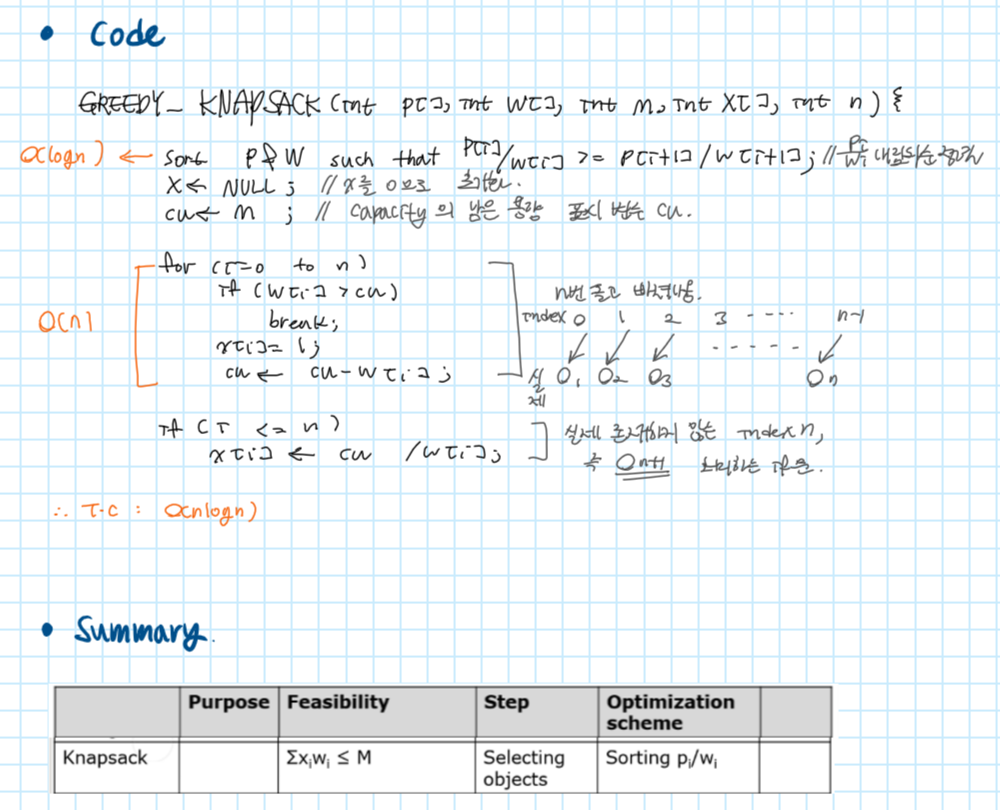 • Code
GREEDY_ KNAPSACK (int p[], int w[], int m, int X[], int n) {
O(logn) ← sort P & W such that p[i]/w[i] >= p[i+1]/w[i+1]; // Pi/Wi 내림차순 정렬
X ← NULL ; // X를 0으로 초기화.
cu ← m ; // capacity의 남은 용량 표시 변수 cu.
for (i=0 to n)
if (w[i] > cu)
break;
x[i] = 1;
cu ← cu-w[i];
O(n)
n번 돌고 빠져나옴.
index 0 1 2 3 ---- n-1
------
실제 O1 O2 O3 On
if (i <= n)
x[i] ← cu /w[i];
실제 존재하지 않는 index n,
즉 On+1
∴ T.C : O(nlogn)
• Summary.
Purpose Feasibility Step Optimization scheme
Knapsack Σxᵢwᵢ ≤ M Selecting objects Sorting pᵢ/wᵢ